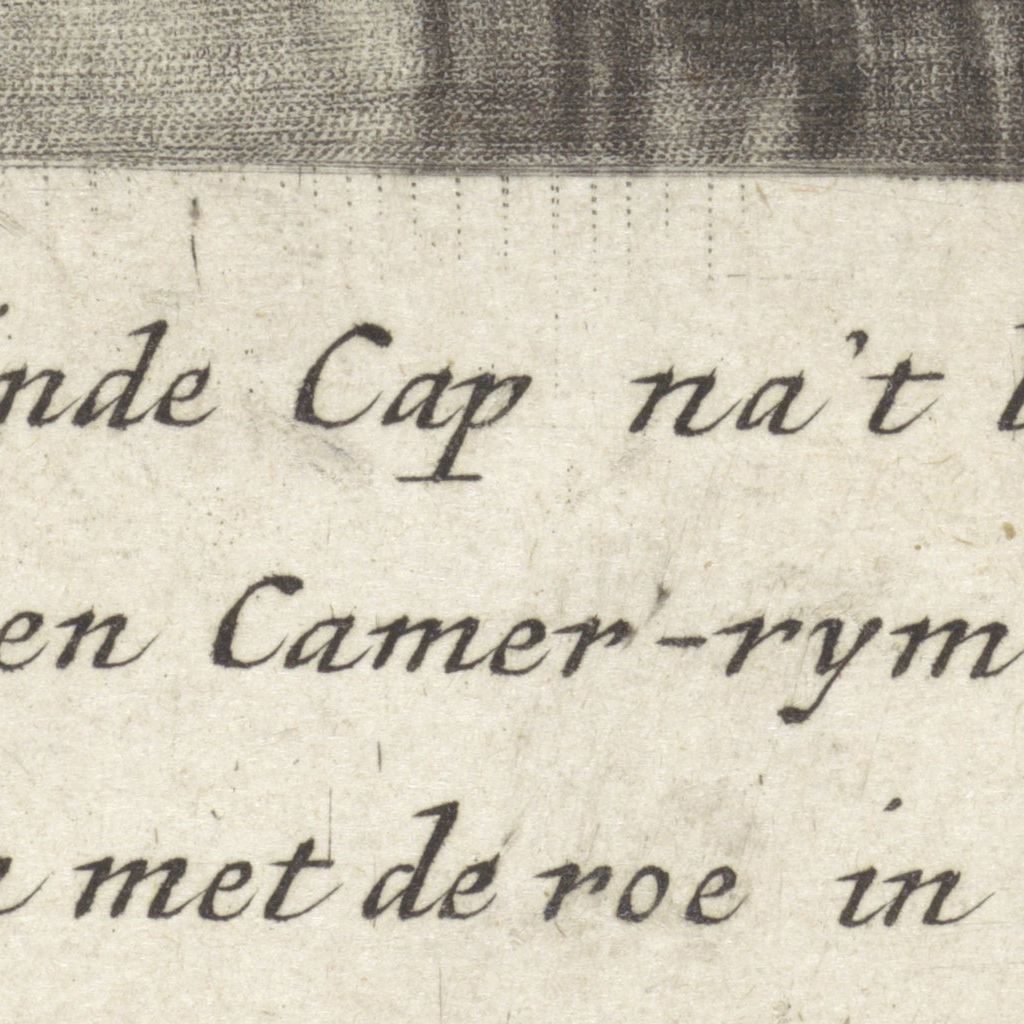 inde Cap na't
en Camer-rym
met de roe in